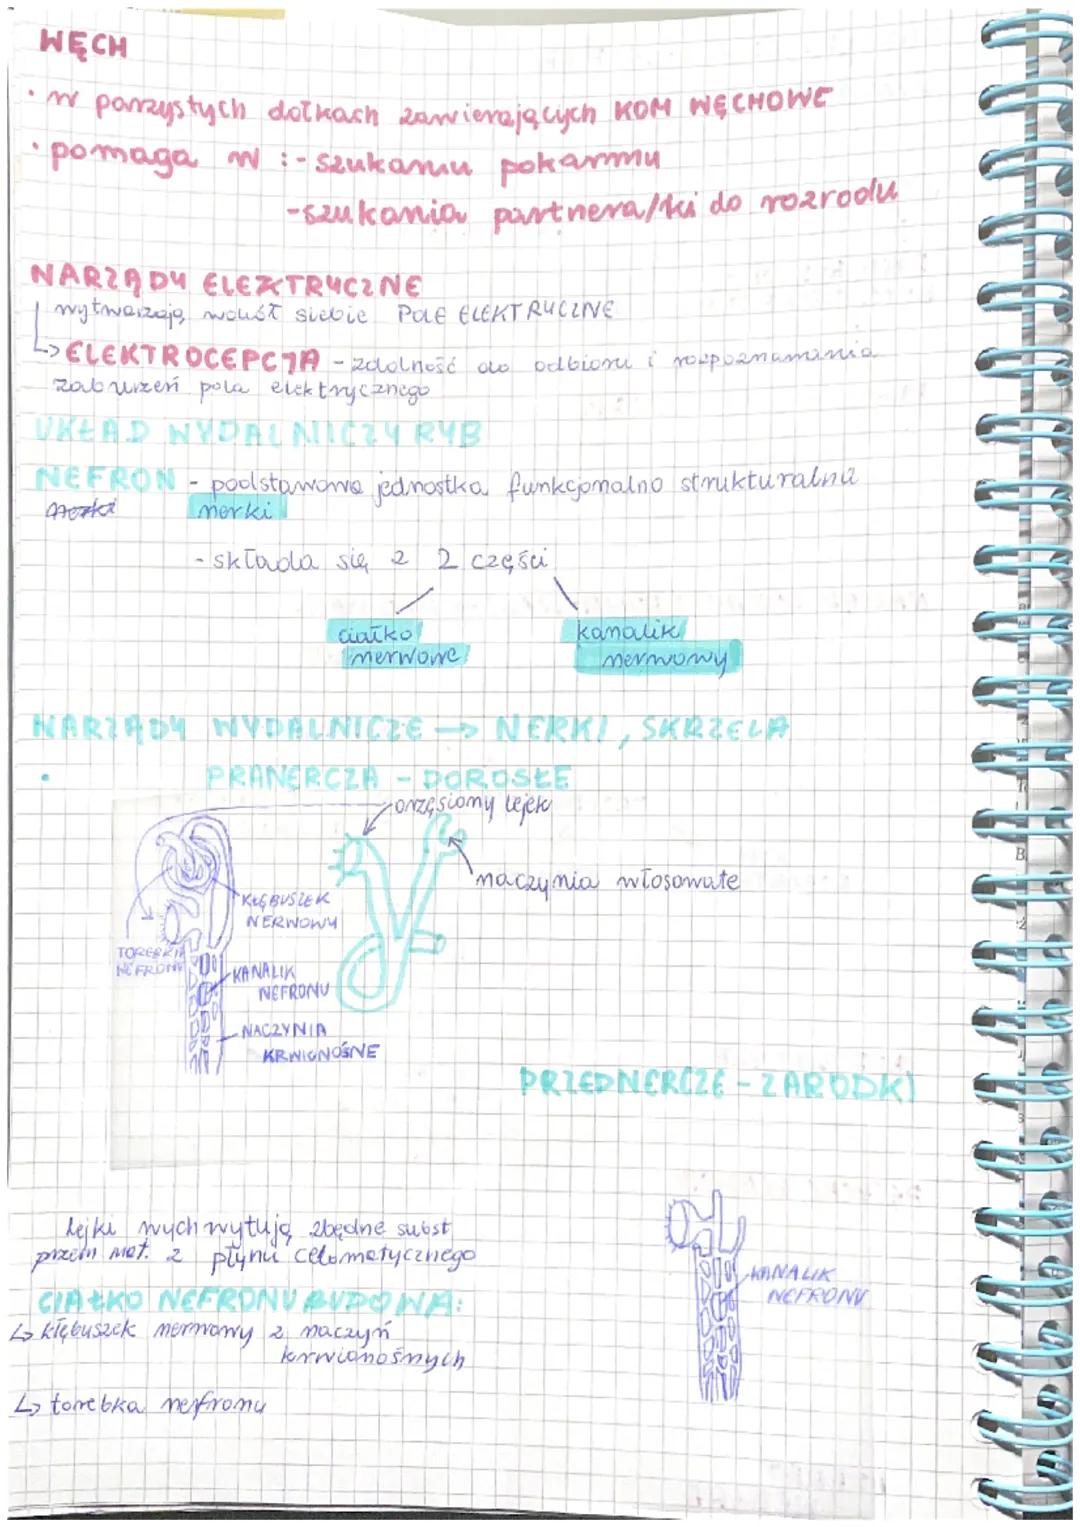 WĘCH
• w parzystych dołkach zawierających KOM WĘCHOWE
• pomaga w :- szukaniu pokarmu
-szukania partnera/ki do rozrodu
NARZĄDY ELEKTRYCZNE
wytwarzają wokół siebie POLE ELEKTRYCZNE
↳ ELEKTROCEPCJA - zdolność do odbioru i rozpoznawania
zaburzeń pola elektrycznego
UKŁAD WYDALNICZY RYB
NEFRON - podstawowa jednostka funkcjonalno strukturalna
nerki nerki
- składa się z 2 części
ciałko kanalik
nerwowe nerwowy
NARZĄDY WYDALNICZE → NERKI, SKRZELA
• PRANERCZA - DOROSŁE
orzęsiony lejek
naczynia włosowate
KŁĘBUSZEK
NERWOWY
TOREBKA
NEFRONU
KANALIK
NEFRONU
NACZYNIA
KRWIONOŚNE
PRZEDNERCZE - ZARODKI
lejki wychwytują zbędne subst
przem mat. z płynu celomatycznego
KANALIK
NEFRONU
CIAŁKO NEFRONU BUDOWA:
↳ kłębuszek nerwowy z naczyń
krwionośnych
↳ torebka nefronu